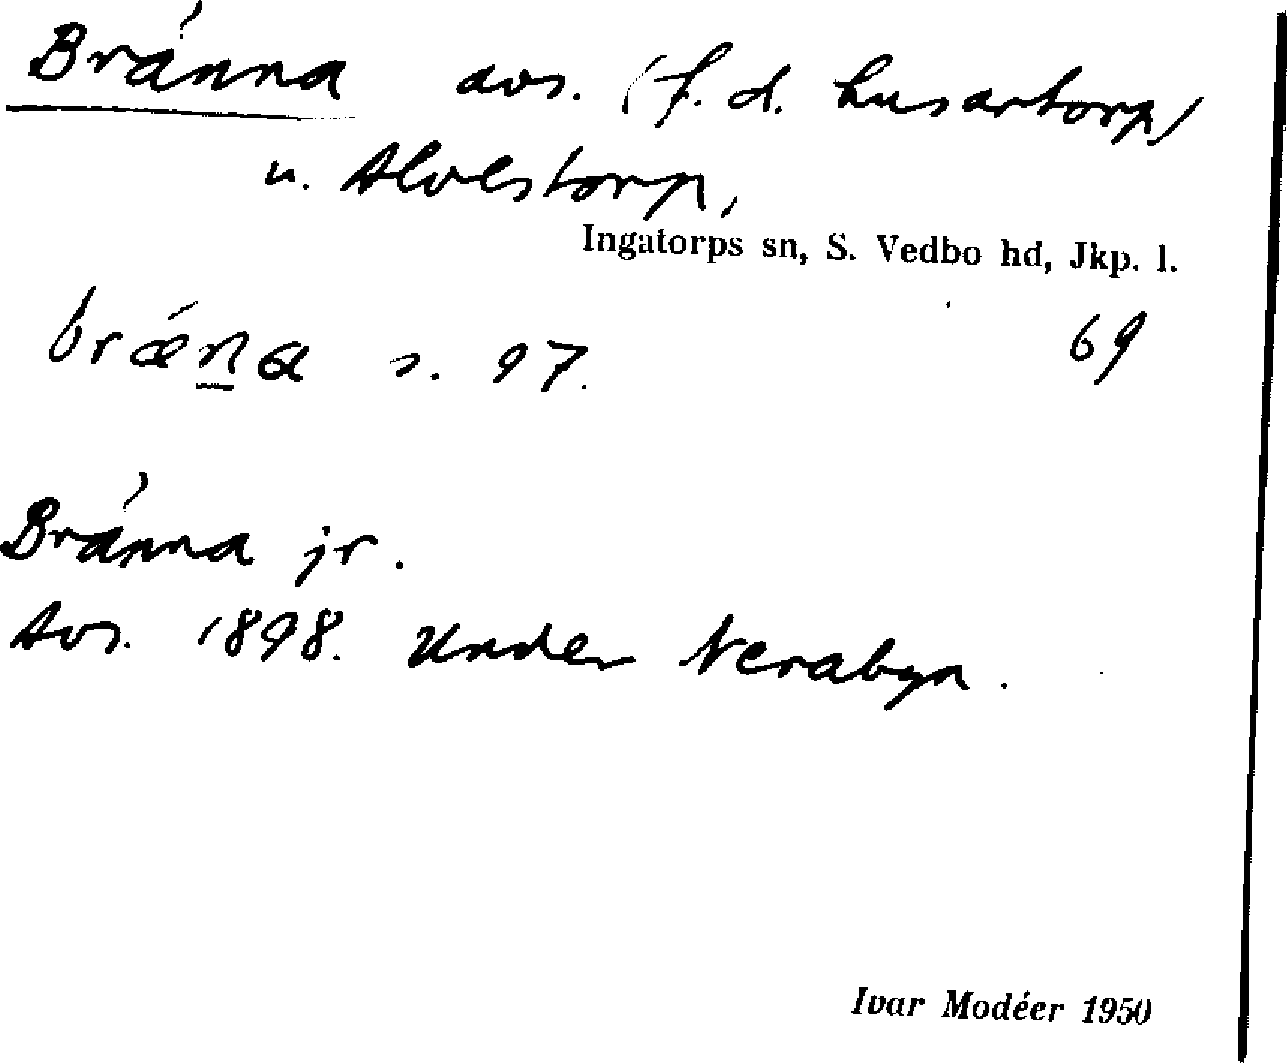 Bränna avs. (f. d. husartorp)
u. Alvestorp,
Ingatorps sn, S. Vedbo hd, Jkp. l.
bræ´na s. 97. 69
Bränna jr.
Avs. 1898. Under Nerabyn.
Ivar Modéer 1950